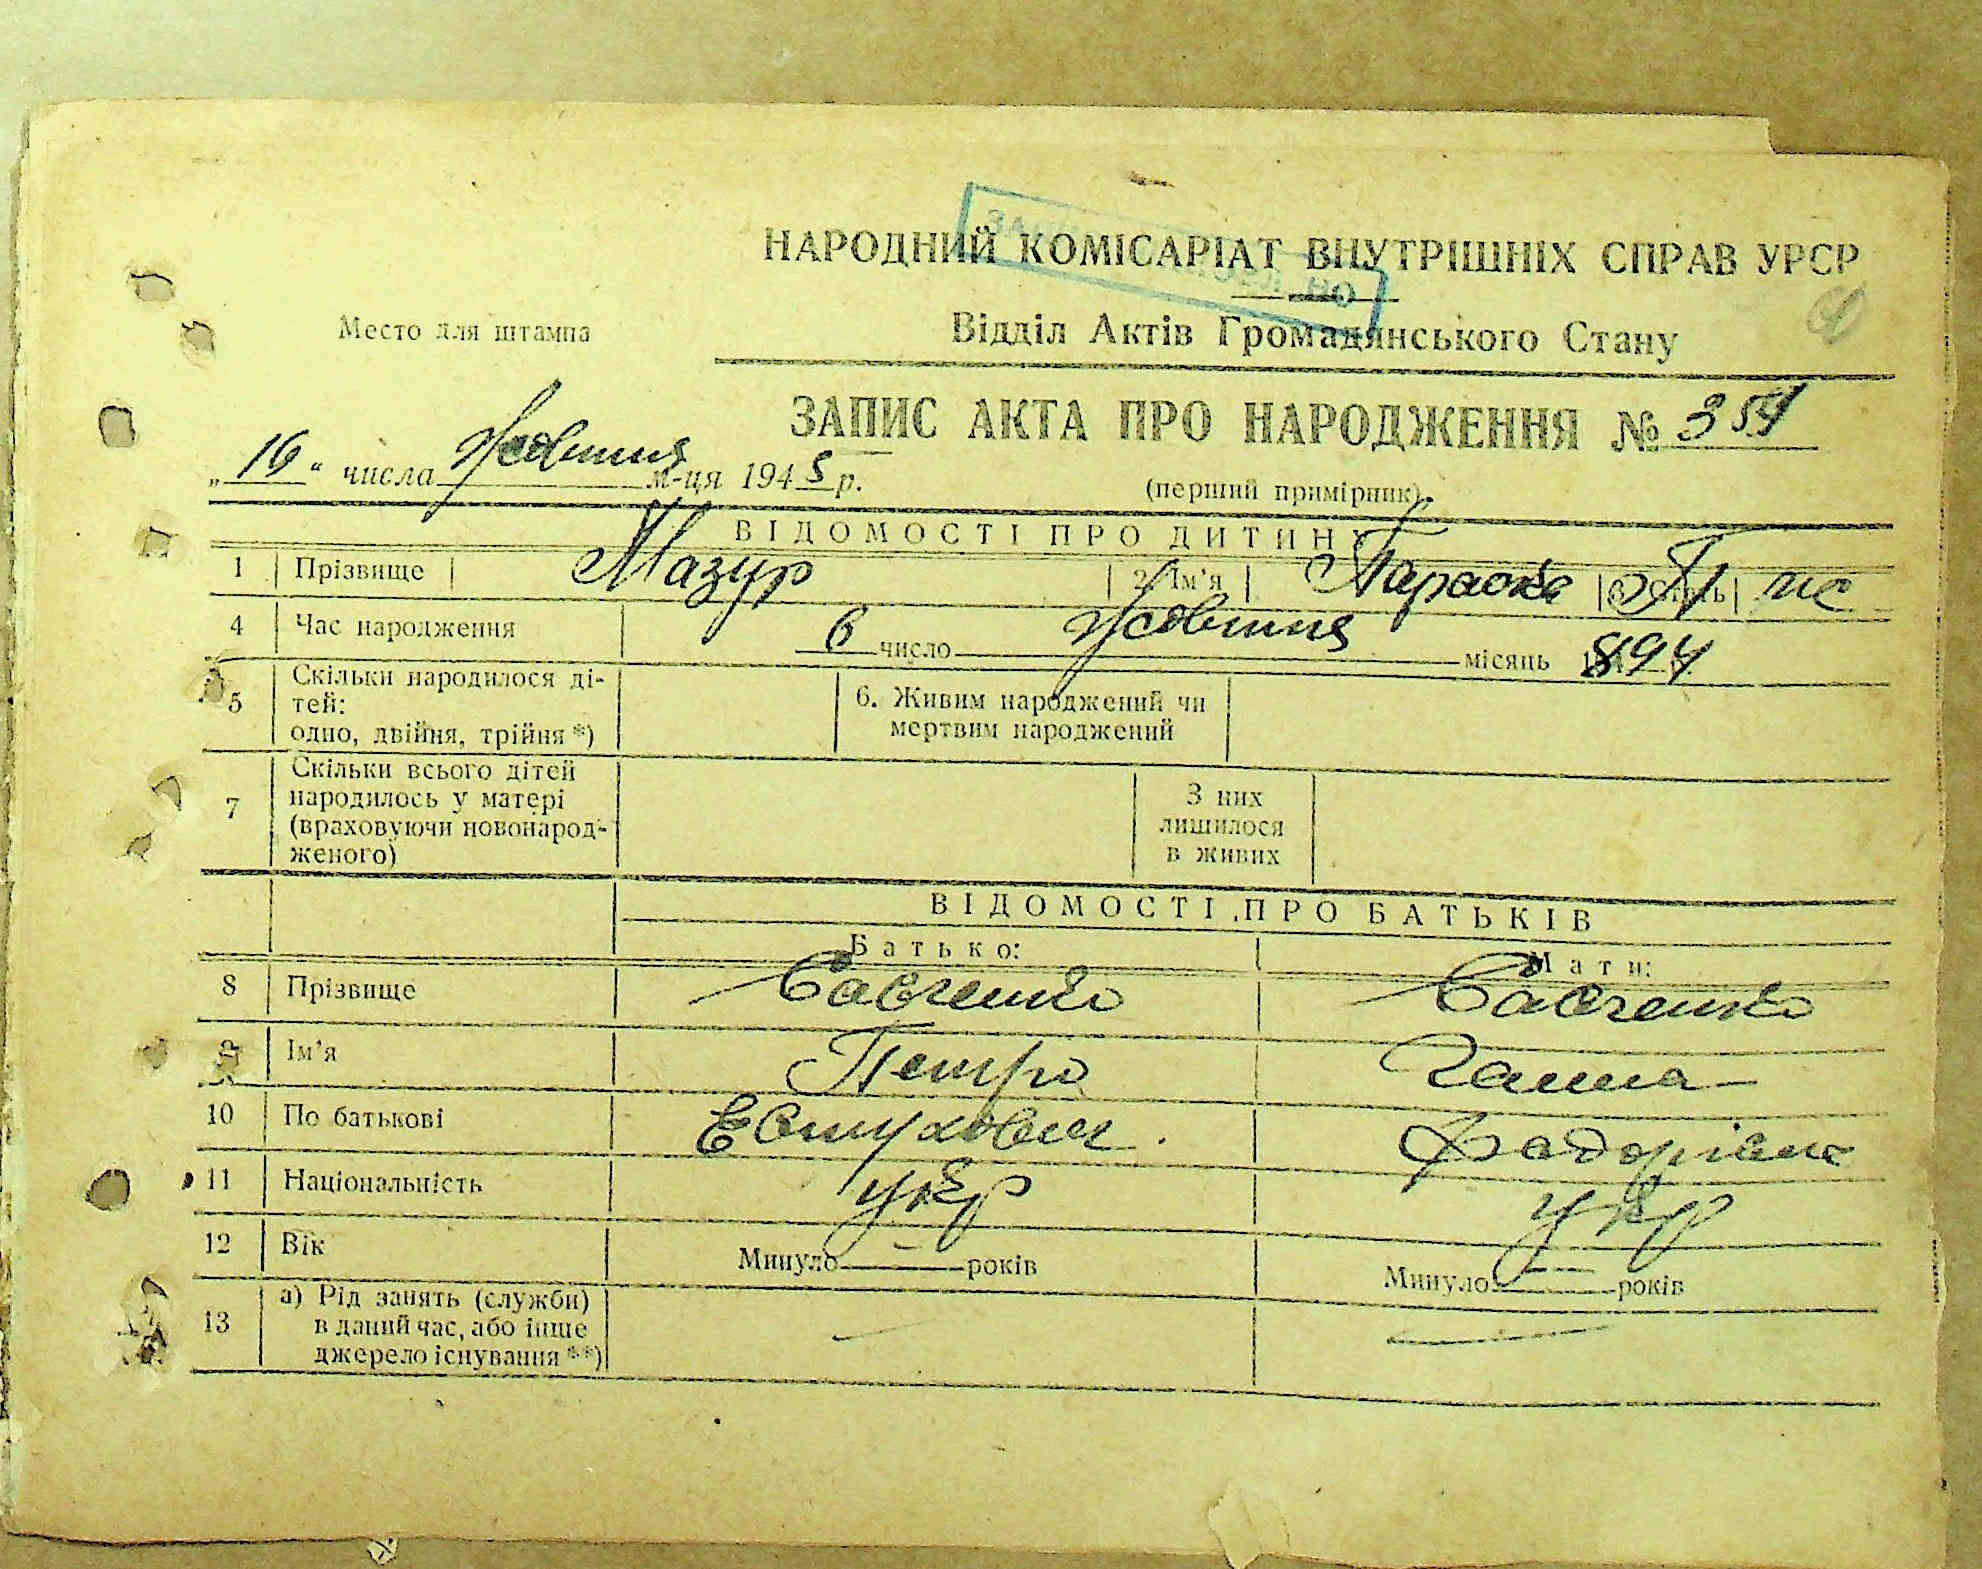 НАРОДНИЙ КОМІСАРІАТ ВНУТРІШНІХ СПРАВ УРСР
Место для штампа
Відділ Актів Громадянського Стану
ЗАПИС АКТА ПРО НАРОДЖЕННЯ № 354
„16“ числа Жовтня м-ця 1945 р.
(перший примірник).
ВІДОМОСТІ ПРО ДИТИН
1 Прізвище Мазур 2 Ім'я Параска П 3 Стать жс
4 Час народження 6 число Жовтня місяць 894
5 Скільки народилося ді-
тей:
одно, двійня, трійня *)
6. Живим народжений чи
мертвим народжений
7 Скільки всього дітей
народилось у матері
(враховуючи новонарод-
женого)
З них
лишилося
в живих
ВІДОМОСТІ ПРО БАТЬКІВ
Батько: Мати:
8 Прізвище Савченко Савченко
9 Ім'я Петро Ганна
10 По батькові Евтухович Федорівна
11 Національність укр укр
12 Вік Минуло — років Минуло — років
13 а) Рід занять (служби)
в даний час, або інше
джерело існування **)